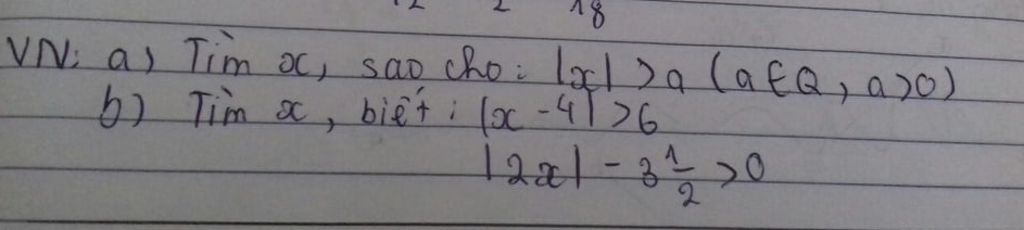 12 2 18
VN: a) Tìm x, sao cho: |x| > a (a ∈ Q, a > 0)
b) Tìm x, biết: |x - 4| > 6
|2x| - 3 1/2 > 0